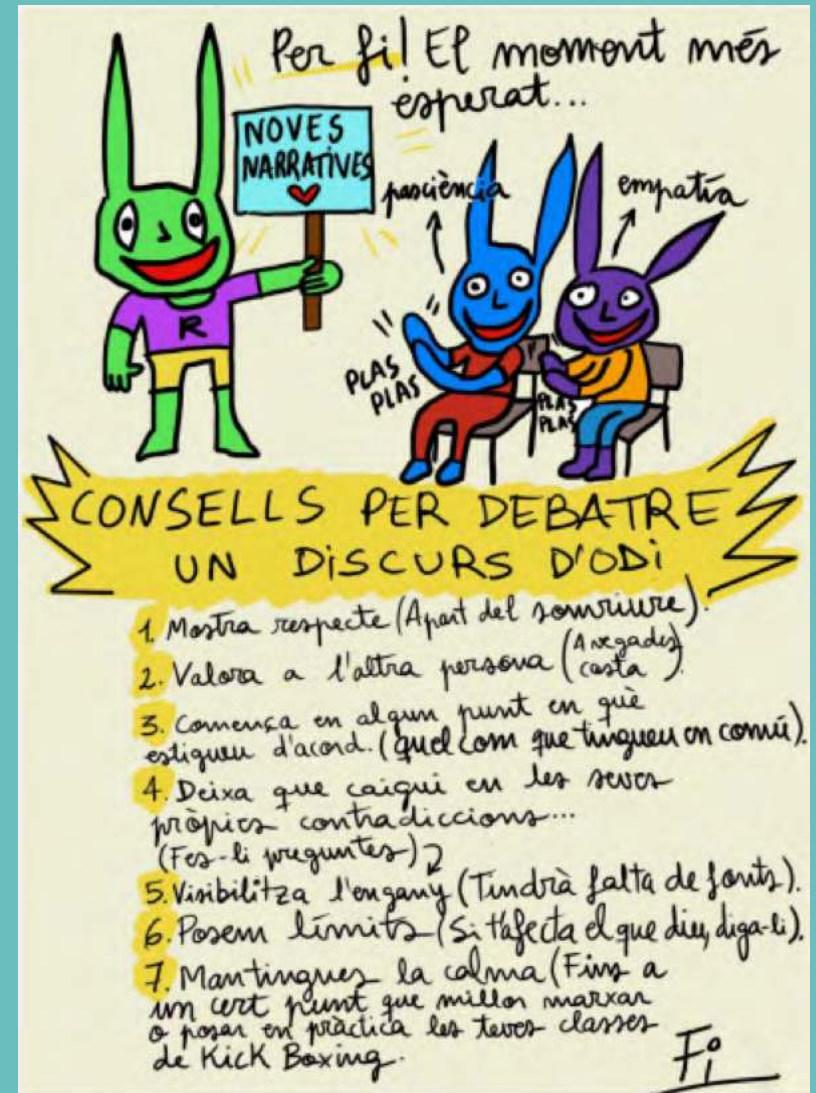 Per fi! El moment més
esperat...
NOVES
NARRATIVES
pasciència
empatía
R
PLAS
PLAS
PLAS
PLAS
CONSELLS PER DEBATRE
UN DISCURS D'ODI
1. Mostra respecte (Apart del somriure).
2. Valora a l'altra persona (A vegades
costa).
3. Comença en algun punt en què
estigueu d'acord. (quelcom que tingueu en comú).
4. Deixa que caigui en les seves
pròpies contradiccions...
(Fes-li preguntes)
5. Visibilitza l'engany (Tindrà falta de fonts).
6. Posem límits (Si t'afecta el que diu, diga-li).
7. Mantingues la calma (Fins a
un cert punt que millor marxar
o posar en pràctica les teves classes
de Kick Boxing.
Fi